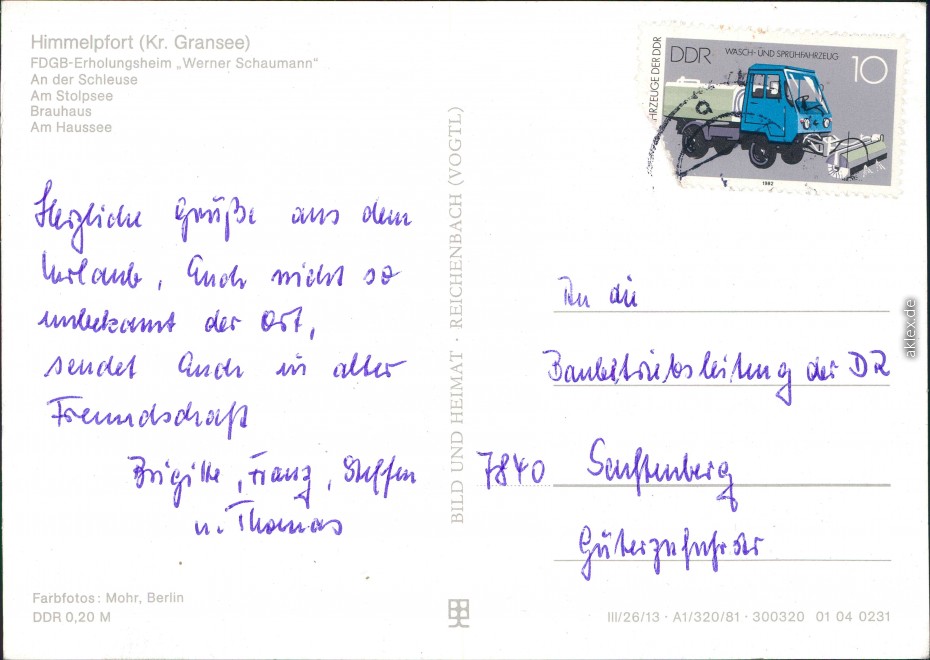 Himmelpfort (Kr. Gransee)
FDGB-Erholungsheim „Werner Schaumann“
An der Schleuse
Am Stolpsee
Brauhaus
Am Haussee
Herzliche Grüße aus dem
Urlaub, Euch nicht so
unbekannt der Ort,
sendet Euch in alter
Freundschaft
Brigitte, Franz, Steffen
u. Thomas
Farbfotos: Mohr, Berlin
DDR 0,20 M
BILD UND HEIMAT · REICHENBACH (VOGTL)
HRZEUGE DER DDR
DDR
WASCH- UND SPRÜHFAHRZEUG
10
1982
An die
Baubetriebsleitung der DR
7840 Senftenberg
Güterzufuhrstr
III/26/13 · A1/320/81 · 300320 01 04 0231
aklex.de